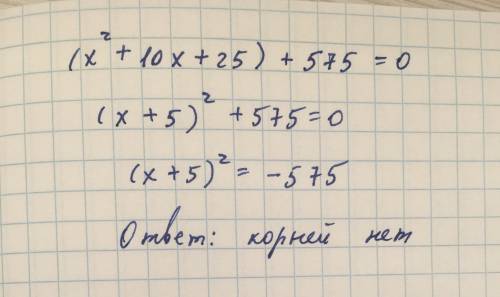 (x² + 10x + 25) + 575 = 0
(x + 5)² + 575 = 0
(x + 5)² = -575
Ответ: корней нет